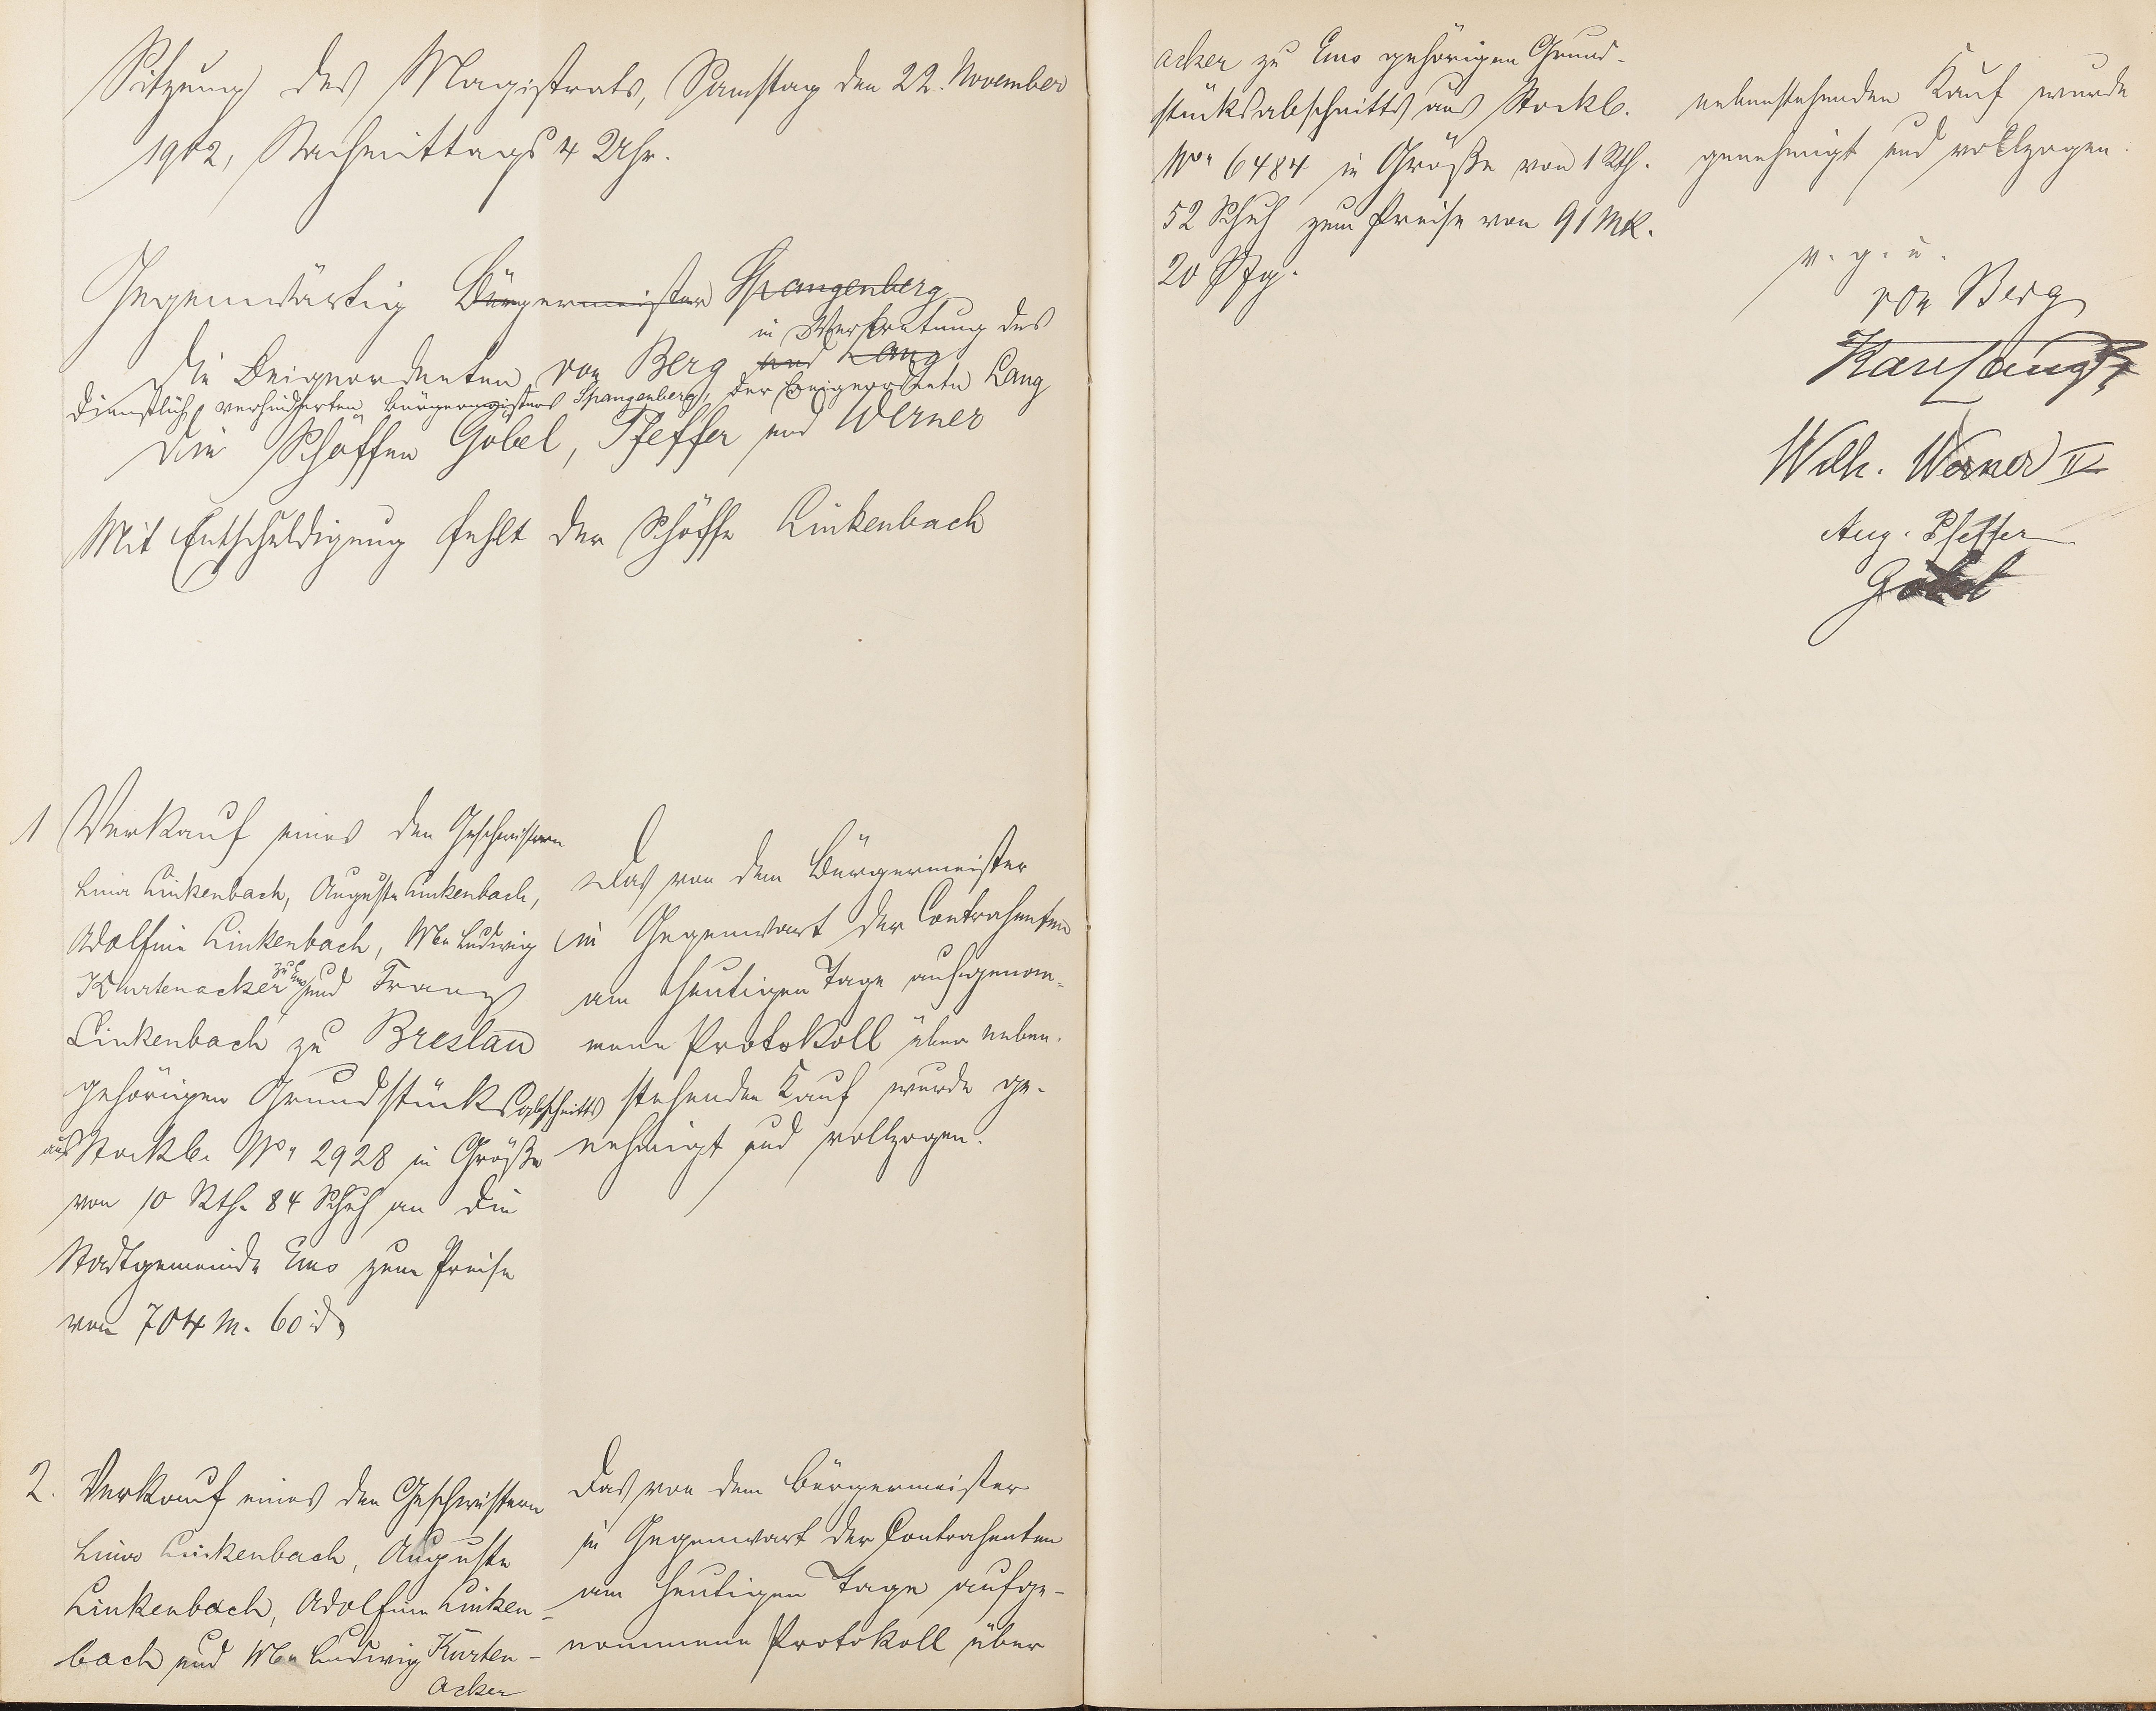 Sitzung des Magistrats, Samstag den 22. November
1902, Nachmittags 4 Uhr.
Gegenwärtig Bürgermeister Spangenberg
in Vertretung des
Die Beigeordneten von Berg und Lang
dienstlich verhinderten Bürgermeisters Spangenberg, der Beigeordnete Lang
die Schöffen Göbel, Pfeffer und Werner
Mit Entschuldigung fehlt der Schöffe Linkenbach
1 Verkauf eines den Geschwistern
Lina Linkenbach, Auguste Linkenbach,
Adolfine Linkenbach, Wwe Ludwig
Kurtenacker zu Ems und Franz
Linkenbach zu Breslau
gehörigen Grundstücksabschnitts
aus Stockb. No 2928 in Größe
von 10 Rth. 84 Schuh an die
Stadtgemeinde Ems zum Preise
von 704 M. 60 ₰
Das von dem Bürgermeister
in Gegenwart der Contrahenten
am heutigen Tage aufgenom-
mene Protokoll über neben-
stehenden Kauf wurde ge-
nehmigt und vollzogen.
2. Verkauf eines den Geschwistern
Lina Linkenbach, Auguste
Linkenbach, Adolfine Linken-
bach und Wwe Ludwig Kurten-
acker
Das von dem Bürgermeister
in Gegenwart der Contrahenten
am heutigen Tage aufge-
nommene Protokoll über
acker zu Ems gehörigen Grund-
stücksabschnitts aus Stockb.
No 6484 in Größe von 1 Rth.
52 Schuh zum Preise von 91 Mk.
20 Pfg.
nebenstehenden Kauf wurde
genehmigt und vollzogen.
v. g. u.
von Berg
Karl Lang
Wilh. Werner II
Aug. Pfeffer
Göbel